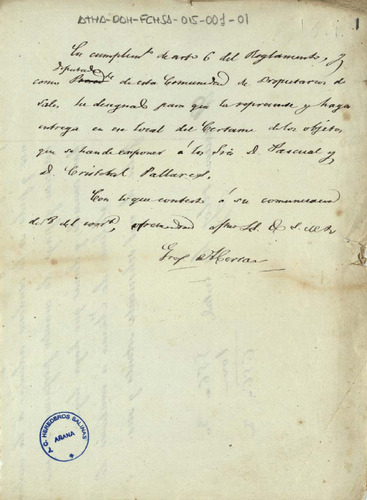 ATHA-DOH-FCHSA-015-001-01
1
En cumplimto de arto 6 del Reglamento, y
Diputado
como de esta Comunidad de Propietarios de
he designado para que la represente y haga
entrega en el local del Certamen de los objetos
que se han de exponer á los Sres D. Pascual y
D. Cristobal Pallares.
Con lo que contesto á su comunicacion
del 8 del corrte,
A. G. HEREDEROS SALINAS
ARANA